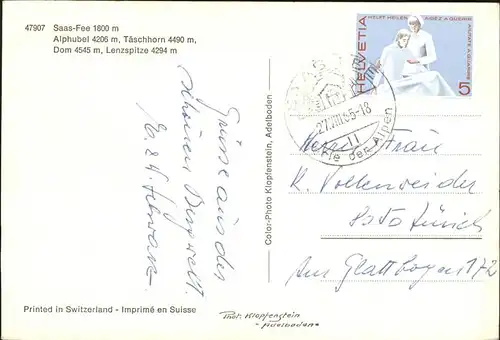 47907 Saas-Fee 1800 m
Alphubel 4206 m, Täschhorn 4490 m,
Dom 4545 m, Lenzspitze 4294 m
Grüsse aus der
schönen Bergwelt.
Color-Photo Klopfenstein, Adelboden
HELFT HEILEN AIDEZ A GUERIR
HELVETIA
5
27.VIII.65-18
Perle der Alpen
Herrn Frau
K. Vollenweider
8050 Zürich
Am Glattbogen 172
Printed in Switzerland - Imprimé en Suisse
Phot. Klopfenstein
- Adelboden -